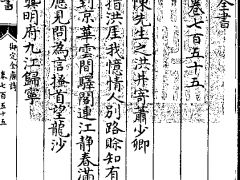 全書
卷七百五十五
陳先生之洪井寄蕭少卿
指洪崖我憶情人別路賒知有
到京華雲開驛閣連江靜春滿
應見問為言搔首望龍沙
龔明府九江歸寧
書
御定全唐詩
卷七百五十五